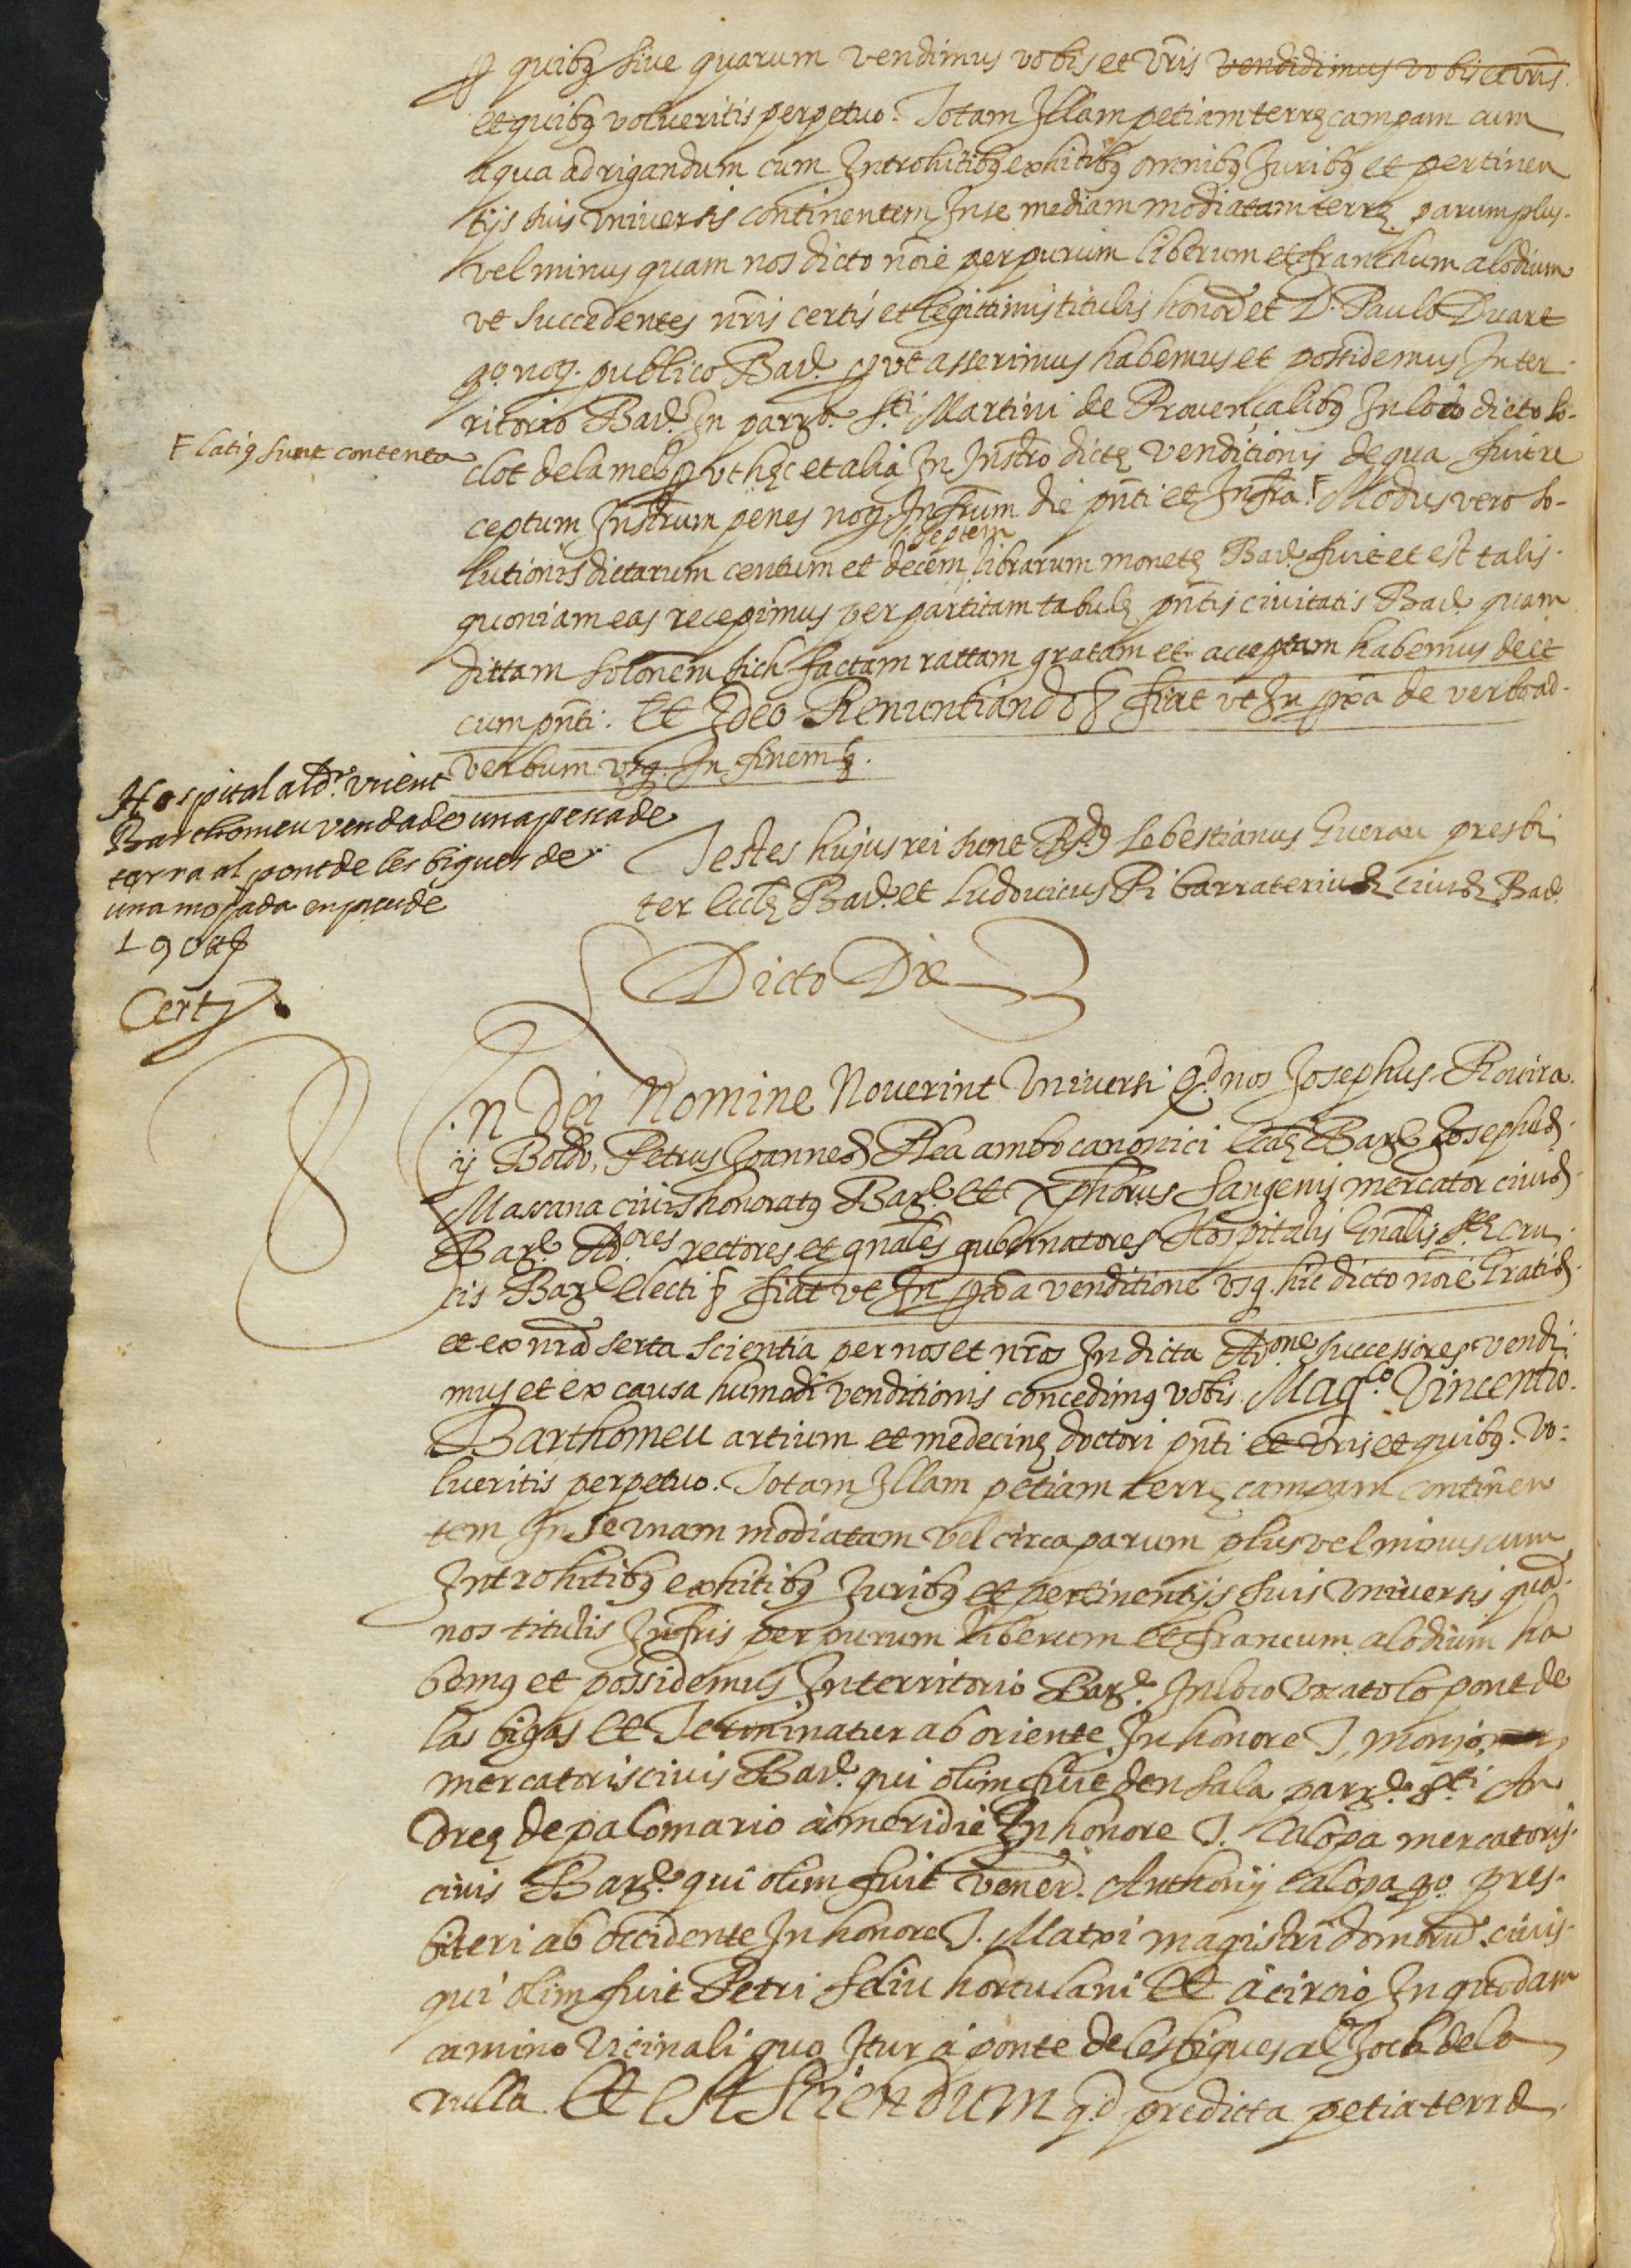 quibȝ sive quarum vendimus vobis et vr̃is vendidimus vobis et vr̃is
et quibȝ volueritis perpetuo. Totam Illam petiam terrę campam cum
aqua ad rigandum cum Introhitibȝ exhitibȝ omnibȝ Juribȝ et pertinen
tijs suis universis continentem In se mediam modiatam terrę parum plus
vel minus quam nos dicto nõie per purum liberum et franchum alodium
ut succedentes nr̃is certis et legittimis titulis honor. et D. Paulo Duart
qº. noṭ. publico Barᵉ. ut asserimus habemus et possidemus In ter
ritorio Barᵉ. In parrᵃ. Sᵗⁱ. Martini de Provençalibȝ In loco dicto lo
clot de la mel ut hęc et alia In Instr̃o dictę venditionis de qua fuit re
F latiȝ sunt contenta
ceptum Instr̃um penes noṭ. Infr̃um die pñti et Infra. F Modus vero so-
lutionis dictarum centum et decem septem librarum monetę Barᵉ. fuit et est talis
quoniam eas recepimus per partitam tabulę pñtis civitatis Barᵉ. quam
dittam solonem̃ sich factam rattam gratam et acceptam habemus de et
cum pñti. Et Ideo Renuntiando & fiat ut In pᵃ de verbo ad
verbum usq. In finem &.
Hospital al dʳ. vicent
Barthomeu venda de una pessa de
terra al pont de les bigues de
una mojada en preu de
190 ll
Cert
Testes hujus rei sunt Rᵈȝ sebestianus Guerau presbi
ter Eccłę Barᵉ. et Ludovicus Ri barraterius civis Barᵉ.
Dicto Die
In Dei Nomine Noverint Universi qᵈ nos Josephus Rovira
y Boldo, Petrus Joannes Plea ambo canonici Eccłę Barᵉ. Josephus
Massana civis honoratȝ Barᵉ. et Xp̃horus Sangenis mercator civis
Barᵉ. Adᵒʳᵉˢ rectores et gñales gubernatores Hospitalis Gñalis Sᵗᵉ Cru
cis Barᵉ. Electi & fiat ut In pᵃ venditione usq. hic dicto nõie Gratis
et ex nr̃a serta scientia per nos et nr̃os In dicta Adᵒⁿᵉ successores vendi
mus et ex causa humõdi venditionis concedimȝ vobis Magᶜᵒ. Vincentio
Barthomeu artium et medecinę doctori pñti et vr̃is et quibȝ. vo-
lueritis perpetuo. Totam Illam petiam terrę campam continen
tem In se unam modiatam vel circa parum plus vel minus cum
Introhitibȝ exhitibȝ Juribȝ et pertinentijs suis universis quã
nos titulis Infr̃is per purum liberum et francum alodium ha
bemȝ et possidemus In territorio Barᵉ. In loco vocato lo pont de
las bigas Et Terminatur ab oriente In honore J. monjo
mercatoris civis Barᵉ. qui olim fuit den sala parrᵃ. Sᵗⁱ An
dreę de palomario à meridie In honore J. Calopa mercatoris
civis Barᵉ. qui olim fuit vener. Anthonij Calopa qº. pres-
biteri ab occidente In honore J. Matxi magistri domorum civis
qui olim fuit Petri feliu hortulani Et à circio In quodam
camino vicinali quo Itur à ponte de les bigues al Joch de la
rulla. Et est sciendum qᵈ predicta petia terrę